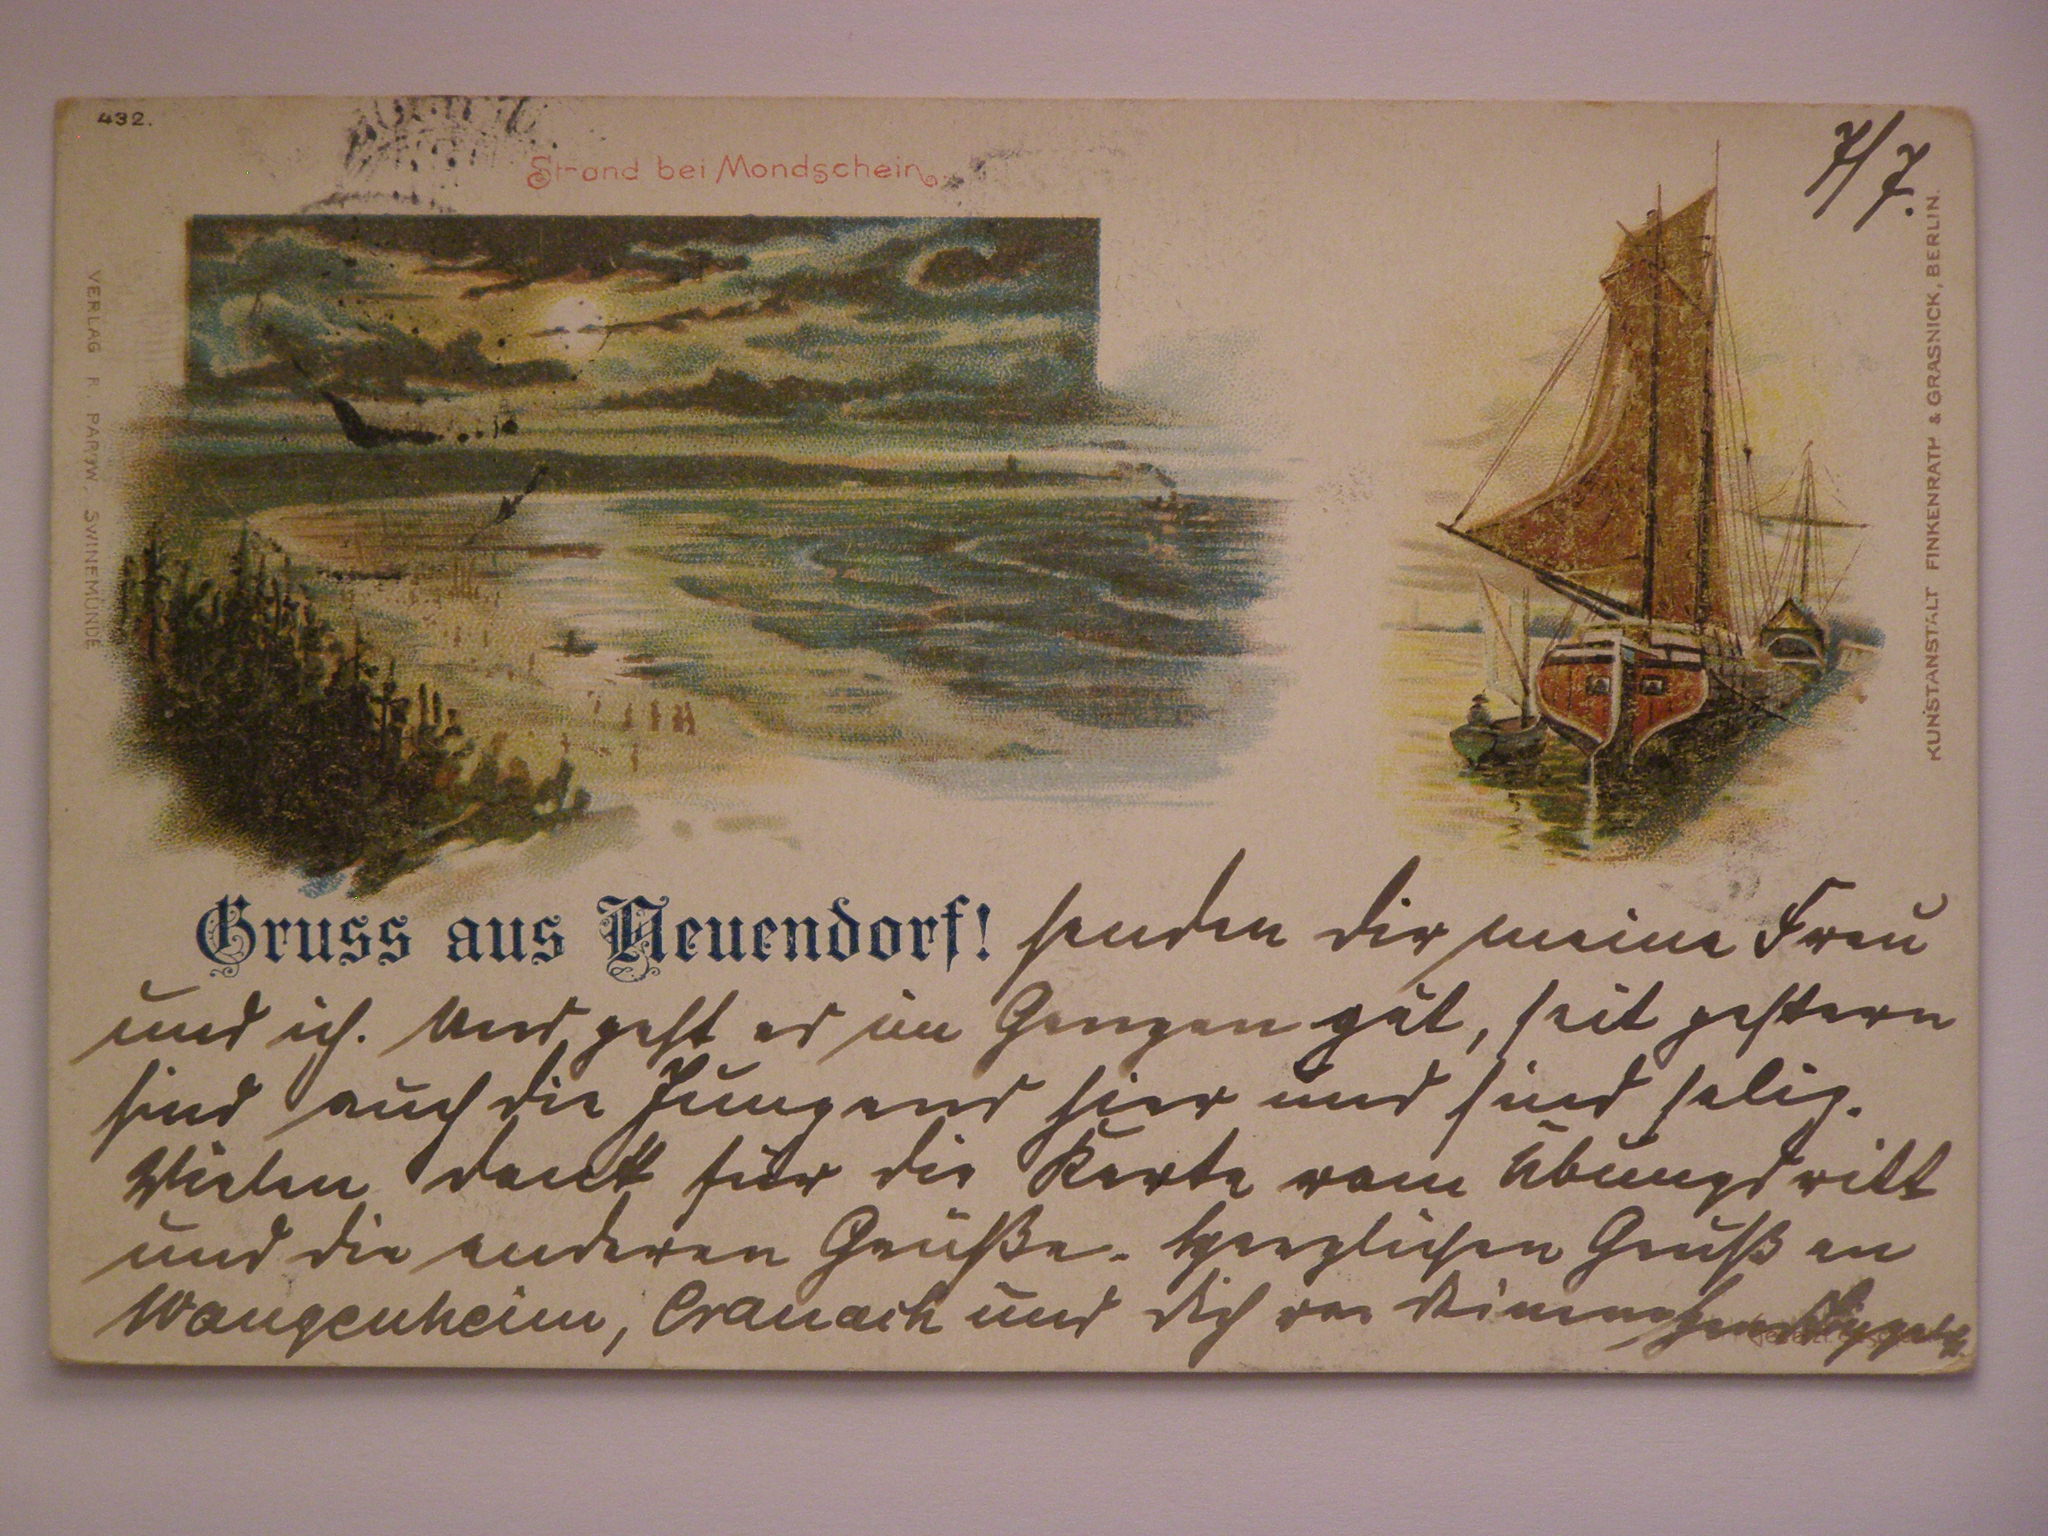 432.
7/7.
Strand bei Mondschein.
VERLAG R. PARYW, SWINEMÜNDE
KUNSTANSTALT FINKENRATH & GRASNICK, BERLIN.
Gruss aus Neuendorf! senden dir meine Frau
und ich. Uns geht es im Ganzen gut, seit gestern
sind auch die Jungens hier und sind selig.
Vielen Dank für die Karte vom Übungsritt
und die anderen Grüße. Herzlichen Gruß an
Wangenheim, Cranach und Dich von Deinem